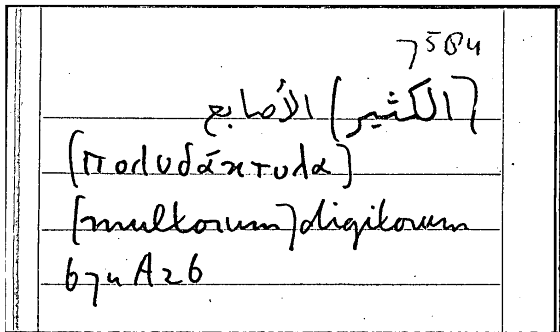 [الكثير] الأصابع
[πολυδάκτυλα]
[multorum] digitorum
674A26